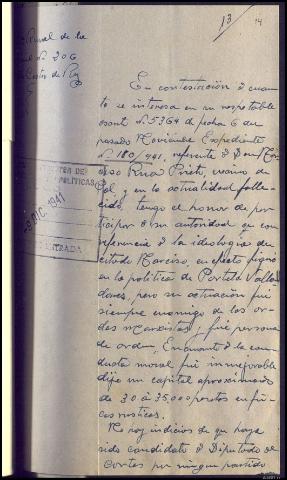 13
14
En contestación á cuan-
to se interesa en su respetable
escrit nº 5364 de fecha 6 del
pasado Noviembre Expediente
nº 180/941, referente á Don Nar-
ciso Pireti, vecino de
Sol, y en la actualidad falle-
cido, tengo el honor de par-
ticipar á su autoridad que con
referencia á la ideología del
citado Narciso, en efecto figuró
en la política de Portela Valla-
dares, pero su actuación fué
siempre enemigo de los or-
des Marxistas y fué persona
de orden, Enquanto á la con-
ducta moral fué inmejorable
dife un capital aproximado
de 30 á 35.000 pesetas en fin-
cas rústicas.
No hay indicios de que haya
sido candidato á Diputado de
Cortes por ningun partido
nº 206
POLÍTICAS
-9 DIC. 1941
ENTRADA